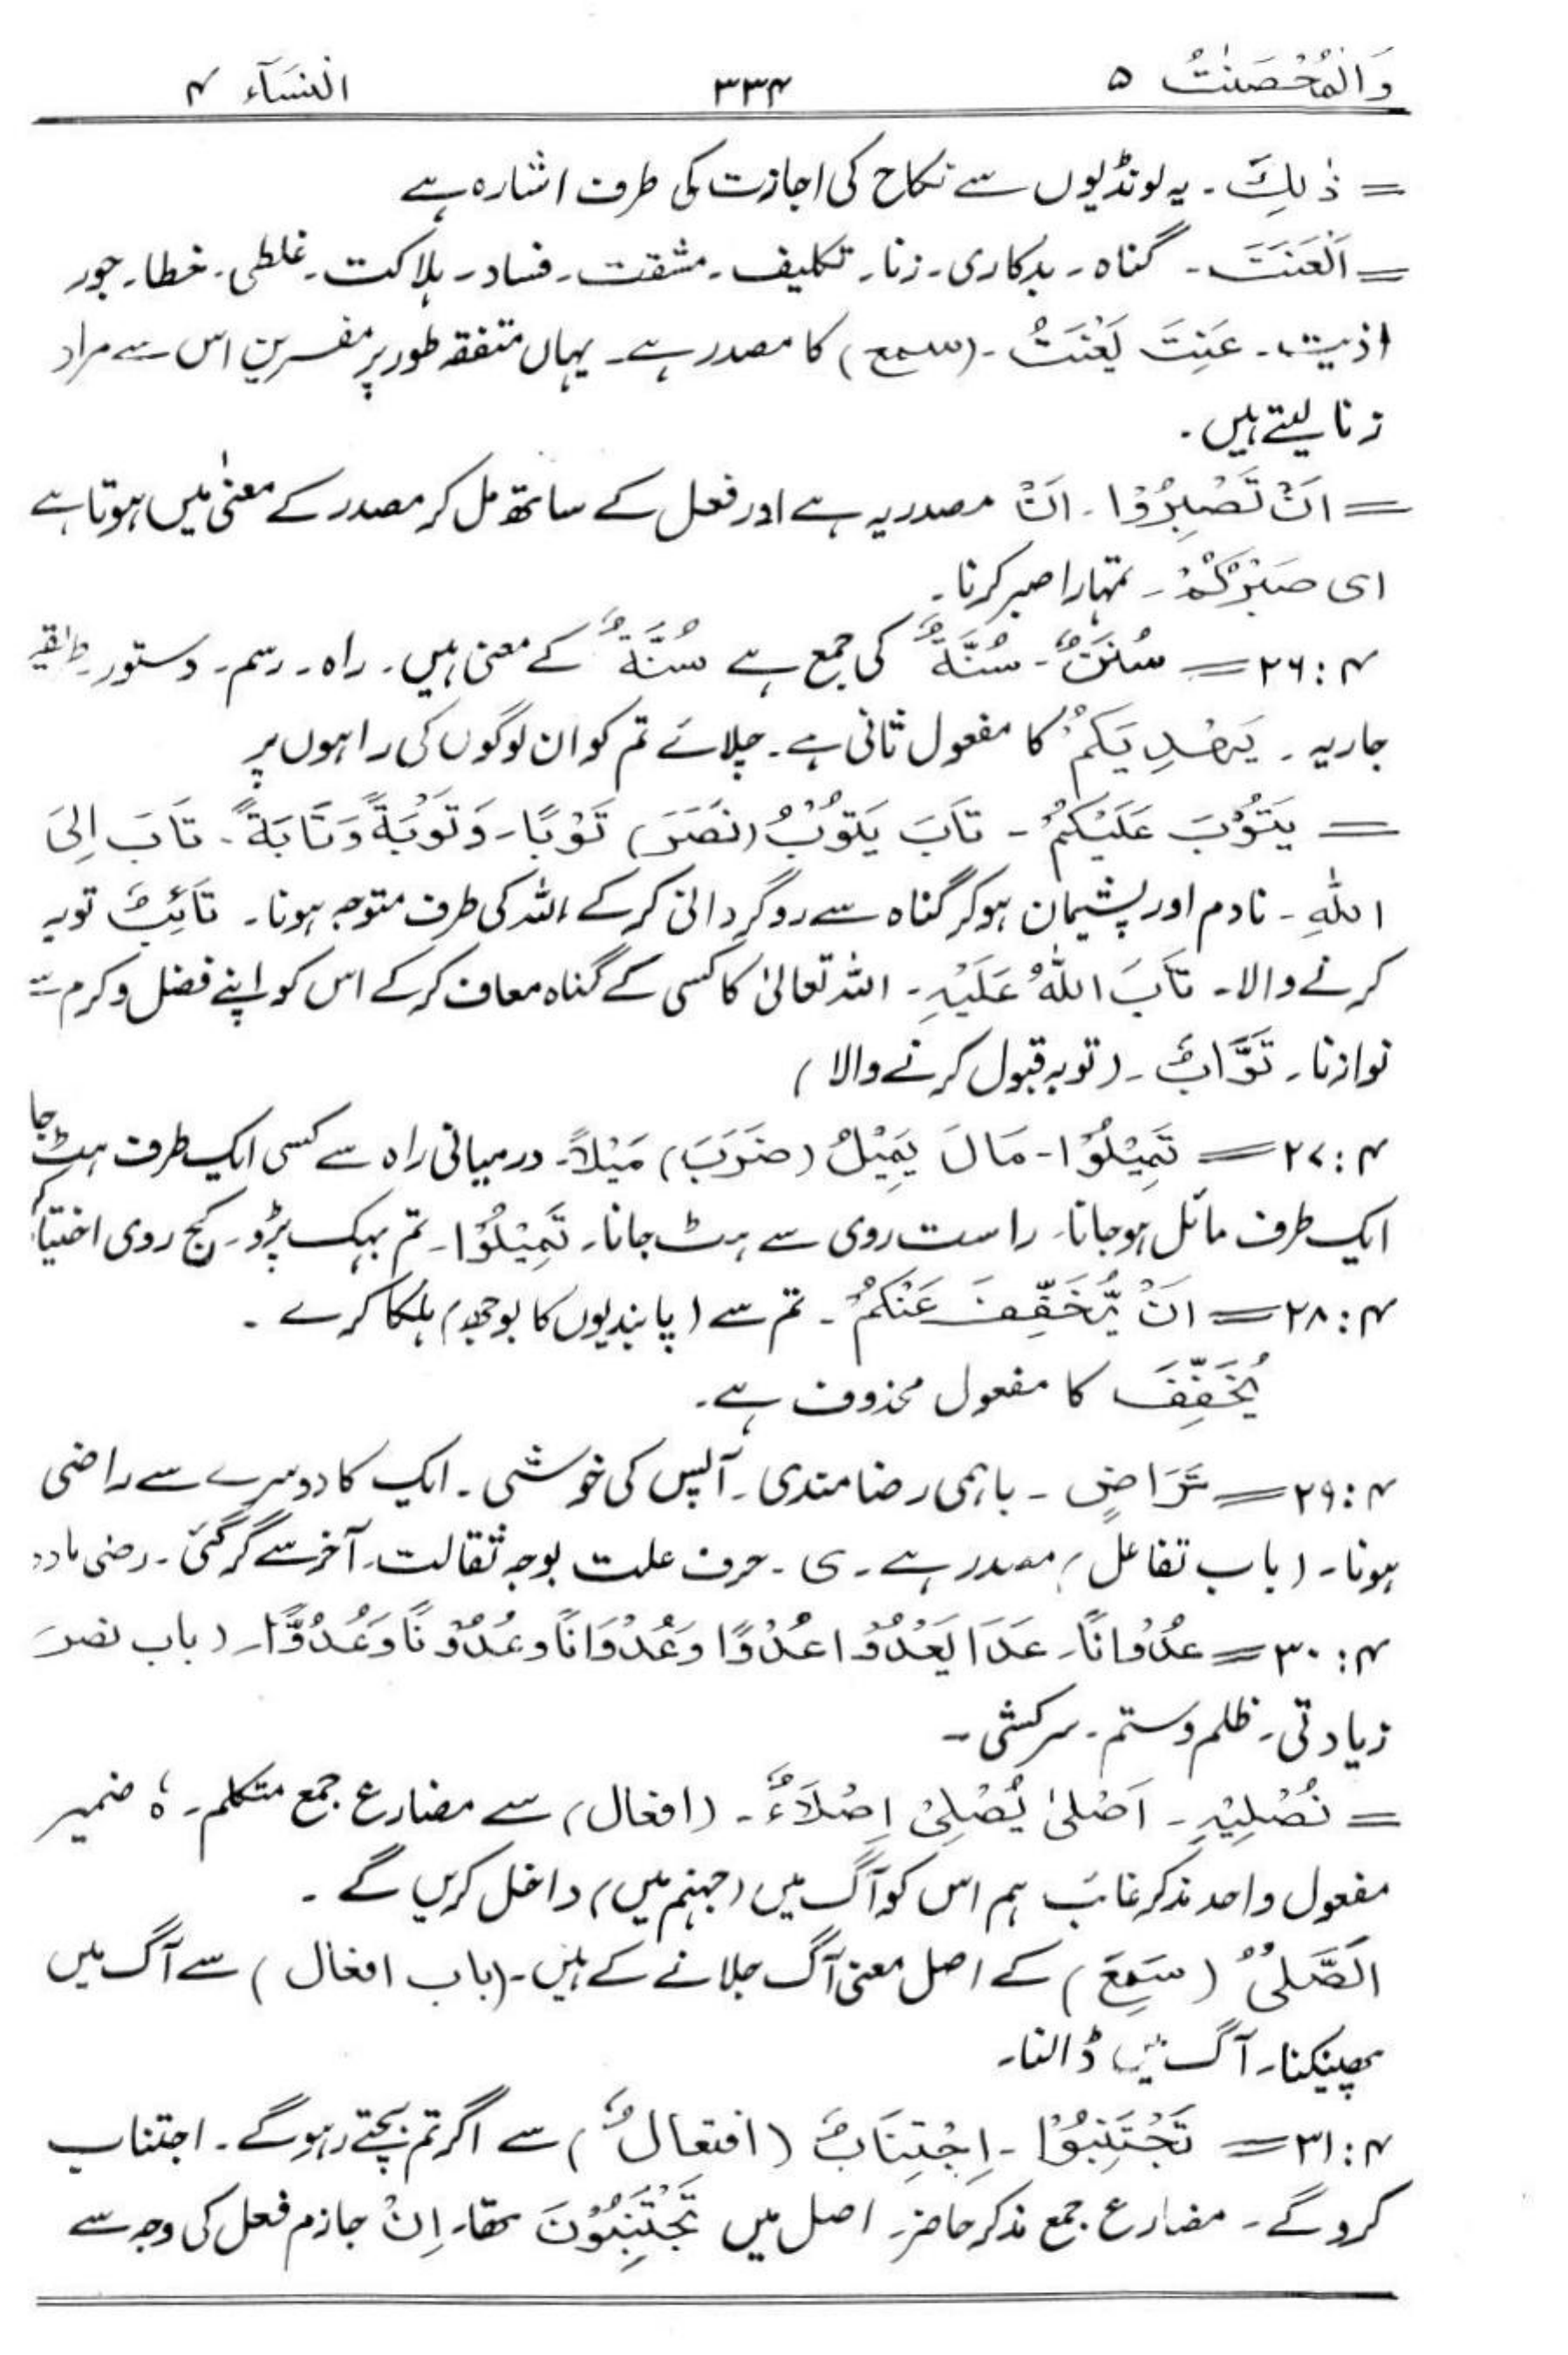 وَالْمُحْصَنٰتُ ۵ ۳۳۴ اَلنِّسَآء ۴
= ذٰلِكَ ۔ یہ لونڈیوں سے نکاح کی اجازت کی طرف اشارہ ہے
= اَلْعَنَتَ ۔ گناہ ۔ بدکاری ۔ زنا ۔ تکلیف ۔ مشقت ۔ فساد ۔ ہلاکت ۔ غلطی ۔ خطا ۔ جور
اذیت ۔ عَنِتَ یَعْنَتُ ۔ (سمع) کا مصدر ہے ۔ یہاں متفقہ طور پر مفسرین اس سے مراد
زنا لیتے ہیں ۔
= اَنْ تَصْبِرُوْا ۔ اَنْ مصدریہ ہے اور فعل کے ساتھ مل کر مصدر کے معنیٰ میں ہوتا ہے
ای صَبْرُکُمْ ۔ تمہارا صبر کرنا ۔
۴ : ۲۶ = سُنَنٌ ۔ سُنَّةٌ کی جمع ہے سُنَّةٌ کے معنی ہیں ۔ راہ ۔ رسم ۔ دستور ۔ طریقہ
جاریہ ۔ یَہْدِیَکُمْ کا مفعول ثانی ہے ۔ چلائے تم کو ان لوگوں کی راہوں پر
= یَتُوْبَ عَلَیْکُمْ ۔ تَابَ یَتُوْبُ (نَصَرَ) تَوْبًا ۔ وَتَوْبَةً وَتَابَةً ۔ تَابَ اِلیَ
اللہِ ۔ نادم اور پشیمان ہو کر گناہ سے روگردانی کرکے اللہ کی طرف متوجہ ہونا ۔ تَائِبٌ توبہ
کرنے والا ۔ تَابَ اللہُ عَلَیْہِ ۔ اللہ تعالیٰ کا کسی کے گناہ معاف کرکے اس کو اپنے فضل و کرم سے
نوازنا ۔ تَوَّابٌ ۔ (توبہ قبول کرنے والا)
۴ : ۲۷ = تَمِیْلُوْا ۔ مَالَ یَمِیْلُ (ضَرَبَ) مَیْلاً ۔ درمیانی راہ سے کسی ایک طرف ہٹ جا
ایک طرف مائل ہو جانا ۔ راست روی سے ہٹ جانا ۔ تَمِیْلُوْا ۔ تم بہک پڑو ۔ کج روی اختیار
۴ : ۲۸ = اَنْ یُّخَفِّفَ عَنْکُمْ ۔ تم سے (پابندیوں کا بوجھ) ہلکا کرے ۔
یُخَفِّفَ کا مفعول محذوف ہے ۔
۴ : ۲۹ = تَرَاضٍ ۔ باہمی رضامندی ۔ آپس کی خوشی ۔ ایک کا دوسرے سے راضی
ہونا ۔ (باب تفاعل) مصدر ہے ۔ ی ۔ حرف علت بوجہ ثقالت ۔ آخر سے گر گئی ۔ رضی
۴ : ۳۰ = عُدْوَانًا ۔ عَدَا یَعْدُوْا عُدْوًا وَعُدْوَانًا وعُدُوْنًا وَعُدُوًّا ۔ (باب نصرَ
زیادتی ۔ ظلم و ستم ۔ سرکشی ۔
= نُصْلِیْہِ ۔ اَصْلیٰ یُصْلِیْ اِصْلَاءٌ ۔ (افعال) سے مضارع جمع متکلم ۔ ہٗ ضمیر
مفعول واحد مذکر غائب ہم اس کو آگ میں (جہنم میں) داخل کریں گے ۔
اَلصَّلیُ (سَمِعَ) کے اصل معنی آگ جلانے کے ہیں ۔ (باب افعال) سے آگ میں
پھینکنا ۔ آگ میں ڈالنا ۔
۴ : ۳۱ = تَجْتَنِبُوْا ۔ اِجْتِنَابٌ (افتعالٌ) سے اگر تم بچتے رہو گے ۔ اجتناب
کرو گے ۔ مضارع جمع مذکر حاضر ۔ اصل میں تَجْتَنِبُوْنَ تھا ۔ اِنْ جازم فعل کی وجہ سے